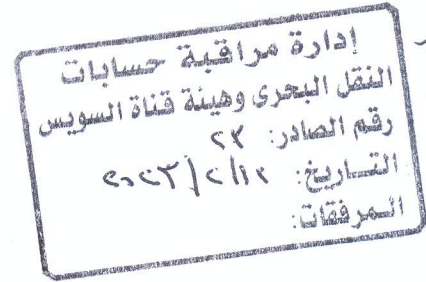 إدارة مراقبة حسابات
النقل البحرى وهيئة قناة السويس
رقم الصادر: ٢٣
التاريخ: ٢٠٢٣/٢/١٢
المرفقات: